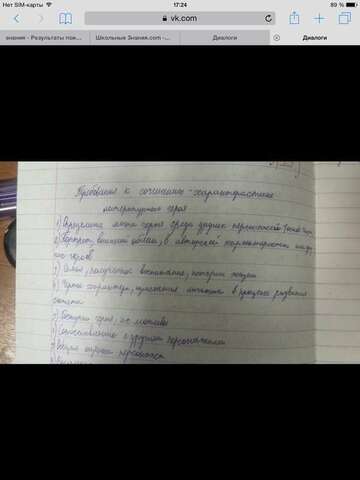 Нет SIM-карты 17:24 89 %
vk.com
знания - Результаты пои... Школьные Знания.com -... Диалоги Диалоги
Требования к сочинению-характеристике
литературного героя
1) Определение места героя среди других персонажей
2) Портрет, внешний облик, в авторской характеристике или др
гих героев
3) Семья, полученное воспитание, история жизни
4) Черты характера, изменения личности в процессе развития
сюжета
5) Поступки героя, их мотивы
6) Сопоставление с другими персонажами
7) оценка персонажа